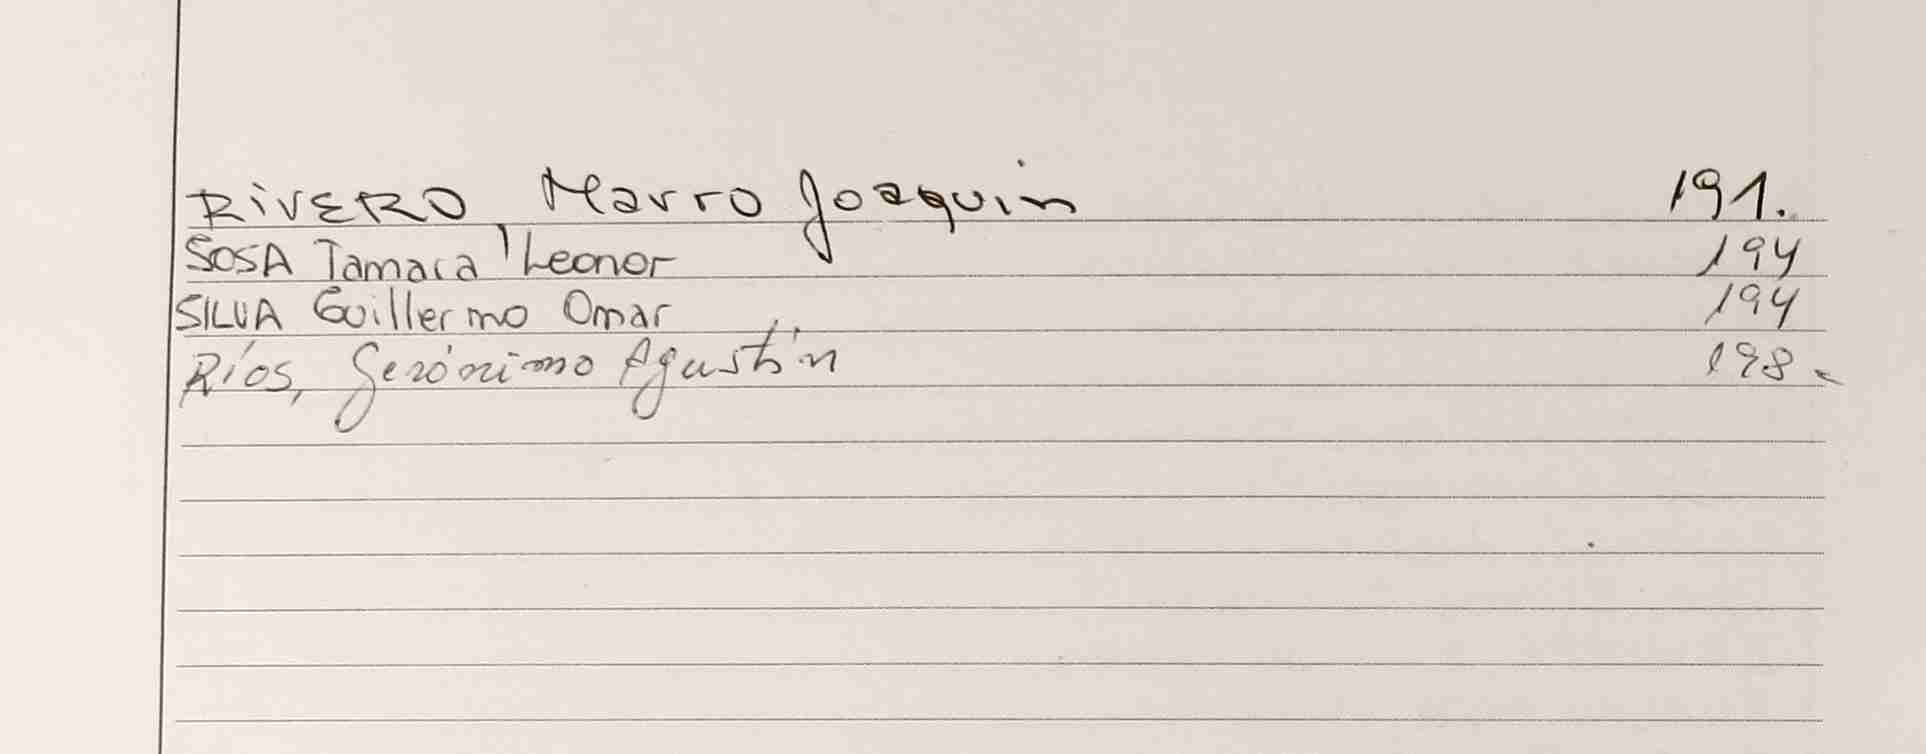 RiVERO Marro Joaquín 191.
SOSA Tamara Leonor 194
SILVA Guillermo Omar 194
Ríos, Gerónimo Agustín 198.